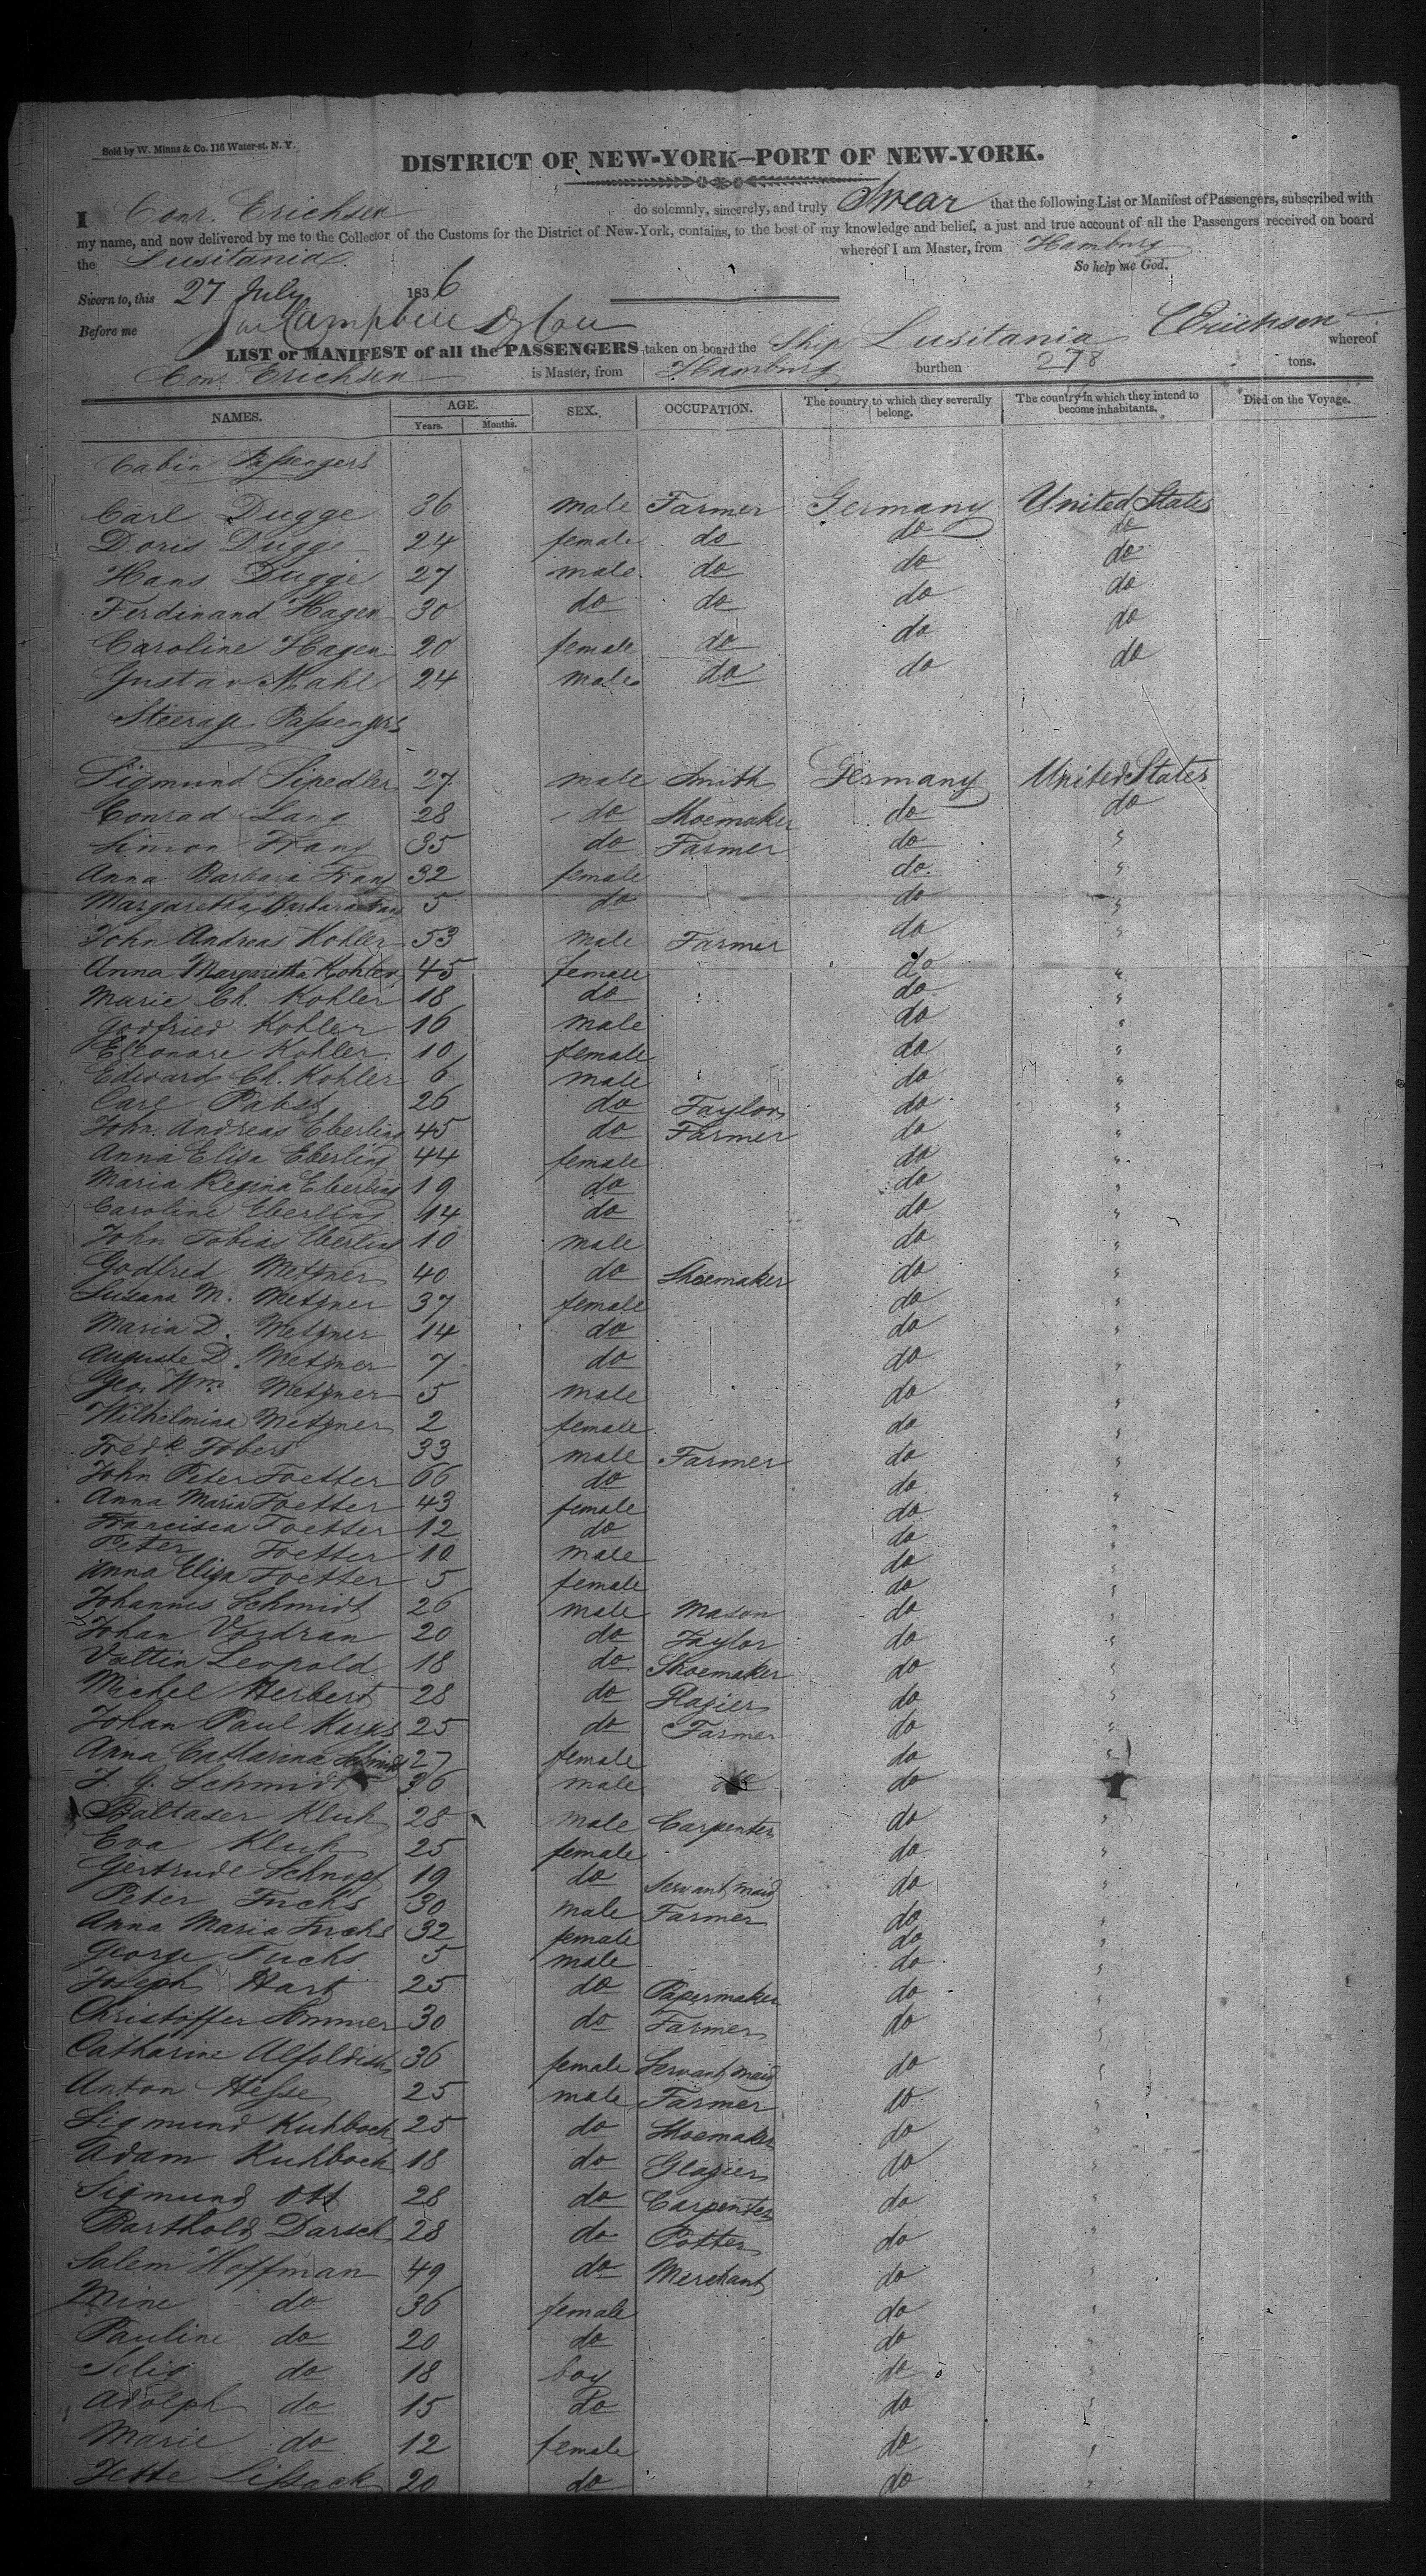 Sold by W. Minns & Co. 116 Water-st. N. Y.
DISTRICT OF NEW-YORK—PORT OF NEW-YORK.
I Conr. Erichsen do solemnly, sincerely, and truly Swear that the following List or Manifest of Passengers, subscribed with
my name, and now delivered by me to the Collector of the Customs for the District of New-York, contains, to the best of my knowledge and belief, a just and true account of all the Passengers received on board
the Lusitania whereof I am Master, from Hamburg
So help me God.
Sworn to, this 27 July 1836
Before me Campbell
LIST or MANIFEST of all the PASSENGERS taken on board the Ship Lusitania CErichsen whereof
Conr. Erichsen is Master, from Hamburg burthen 278 tons.
NAMES. AGE. Years. Months. SEX. OCCUPATION. The country to which they severally belong. The country in which they intend to become inhabitants. Died on the Voyage.
Cabin Passengers
Carl Dugge 36 male Farmer Germany United States
Doris Dugge 24 female do do do
Hans Dugge 27 male do do do
Ferdinand Hagen 30 do do do do
Caroline Hagen 20 female do do do
Gustav Mahl 24 male do do do
Steerage Passengers
Sigmund Sipedler 27 male Smith Germany United States
Conrad Lang 28 do Shoemaker do do
Simon Franz 35 do Farmer do "
Anna Barbara Franz 32 female do "
Margaretha Barbara Franz 5 do do "
John Andreas Kohler 53 male Farmer do "
Anna Margaretha Kohler 45 female do "
Marie Ch. Kohler 18 do do "
Godfried Kohler 16 male do "
Eleonore Kohler 10 female do "
Edward Ch. Kohler 6 male do "
Carl Pabst 26 do Taylor do "
John Andreas Eberling 45 do Farmer do "
Anna Elisa Eberling 44 female do "
Maria Regina Eberling 19 do do "
Caroline Eberling 14 do do "
John Tobias Eberling 10 male do "
Godfred Metzner 40 do Shoemaker do "
Susana M. Metzner 37 female do "
Maria D. Metzner 14 do do "
Auguste D. Metzner 7 do do "
Geo. Wm. Metzner 5 male do "
Wilhelmina Metzner 2 female do "
Fredk Tobert 33 male Farmer do "
John Peter Foetter 66 do do "
Anna Maria Foetter 43 female do "
Francisca Foetter 12 do do "
Peter Foetter 10 male do "
Anna Eliza Foetter 5 female do "
Johannis Schmidt 26 male Mason do "
Johan Vordran 20 do Taylor do "
Valtin Leopold 18 do Shoemaker do "
Michel Herbert 28 do Glazier do "
Johan Paul 25 do Farmer do "
Anna Catharina Schmidt 27 female do "
J. G. Schmidt 36 male do
Baltaser Kluh 28 male Carpenter do "
Eva Kluh 25 female do "
Gertrude Schnapf 19 do Servant maid do "
Peter Fuchs 30 male Farmer do "
Anna Maria Fuchs 32 female do "
George Fuchs 5 male do "
Joseph Hart 25 do Papermaker do "
Christoffer Sommer 30 do Farmer do "
Catharine 36 female Servant maid do "
Anton Hesse 25 male Farmer do "
Sigmund Kuhboch 25 do Shoemaker do "
Adam Kuhboch 18 do Glazier do "
Sigmund Ott 28 do Carpenter do "
Barthold Darsch 28 do Potter do "
Salem Hoffman 49 do Merchant do "
Mine do 36 female do "
Pauline do 20 do do "
Selig do 18 boy do "
Adolph do 15 do do "
Marie do 12 female do "
Jette Lissack 20 do do "